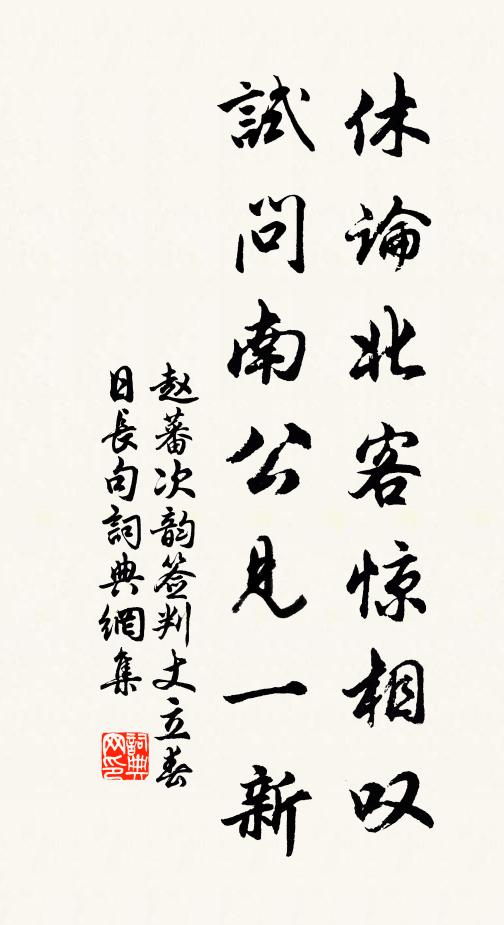 休論北客惊相叹
試問南公見一新
赵蕃次韵签判丈立春
日長句詞典網集
詞典网印